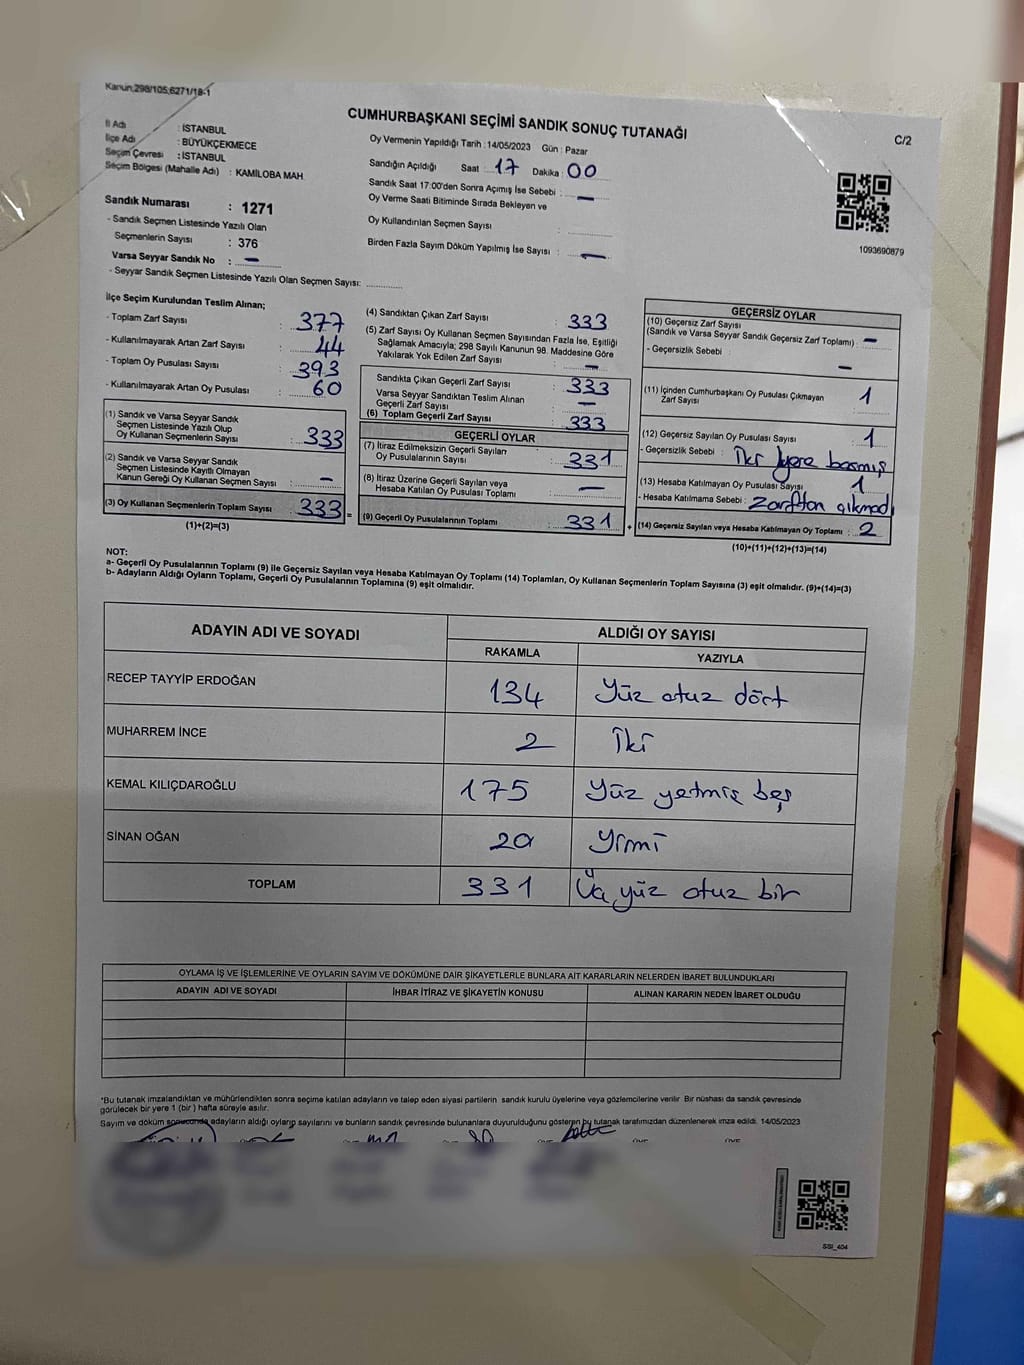 Kanun;298/105;6271/18-1
CUMHURBAŞKANI SEÇİMİ SANDIK SONUÇ TUTANAĞI
C/2
İl Adı : İSTANBUL
İlçe Adı : BÜYÜKÇEKMECE
Seçim Çevresi : İSTANBUL
Seçim Bölgesi (Mahalle Adı) : KAMİLOBA MAH.
Oy Vermenin Yapıldığı Tarih : 14/05/2023 Gün : Pazar
Sandığın Açıldığı Saat : 17 Dakika : 00
Sandık Saat 17:00'den Sonra Açımış İse Sebebi : —
Oy Verme Saati Bitiminde Sırada Bekleyen ve
Oy Kullandırılan Seçmen Sayısı :
Birden Fazla Sayım Döküm Yapılmış İse Sayısı : —
1093690879
Sandık Numarası : 1271
- Sandık Seçmen Listesinde Yazılı Olan
Seçmenlerin Sayısı : 376
Varsa Seyyar Sandık No : —
- Seyyar Sandık Seçmen Listesinde Yazılı Olan Seçmen Sayısı:
İlçe Seçim Kurulundan Teslim Alınan;
- Toplam Zarf Sayısı : 377
- Kullanılmayarak Artan Zarf Sayısı : 44
- Toplam Oy Pusulası Sayısı : 393
- Kullanılmayarak Artan Oy Pusulası : 60
(1) Sandık ve Varsa Seyyar Sandık
Seçmen Listesinde Yazılı Olup
Oy Kullanan Seçmenlerin Sayısı : 333
(2) Sandık ve Varsa Seyyar Sandık
Seçmen Listesinde Kayıtlı Olmayan
Kanun Gereği Oy Kullanan Seçmen Sayısı : —
(3) Oy Kullanan Seçmenlerin Toplam Sayısı : 333 =
(1)+(2)=(3)
(4) Sandıktan Çıkan Zarf Sayısı : 333
(5) Zarf Sayısı Oy Kullanan Seçmen Sayısından Fazla İse, Eşitliği
Sağlamak Amacıyla; 298 Sayılı Kanunun 98. Maddesine Göre
Yakılarak Yok Edilen Zarf Sayısı : —
Sandıkta Çıkan Geçerli Zarf Sayısı : 333
Varsa Seyyar Sandıktan Teslim Alınan
Geçerli Zarf Sayısı : —
(6) Toplam Geçerli Zarf Sayısı : 333
GEÇERLİ OYLAR
(7) İtiraz Edilmeksizin Geçerli Sayılan
Oy Pusulalarının Sayısı : 331
(8) İtiraz Üzerine Geçerli Sayılan veya
Hesaba Katılan Oy Pusulası Toplamı : —
(9) Geçerli Oy Pusulalarının Toplamı : 331 +
GEÇERSİZ OYLAR
(10) Geçersiz Zarf Sayısı
(Sandık ve Varsa Seyyar Sandık Geçersiz Zarf Toplamı) : —
- Geçersizlik Sebebi : —
(11) İçinden Cumhurbaşkanı Oy Pusulası Çıkmayan
Zarf Sayısı : 1
(12) Geçersiz Sayılan Oy Pusulası Sayısı : 1
- Geçersizlik Sebebi : İki yere basmış
(13) Hesaba Katılmayan Oy Pusulası Sayısı : 1
- Hesaba Katılmama Sebebi : Zarftan çıkmadı
(14) Geçersiz Sayılan veya Hesaba Katılmayan Oy Toplamı : 2
(10)+(11)+(12)+(13)=(14)
NOT:
a- Geçerli Oy Pusulalarının Toplamı (9) ile Geçersiz Sayılan veya Hesaba Katılmayan Oy Toplamı (14) Toplamları, Oy Kullanan Seçmenlerin Toplam Sayısına (3) eşit olmalıdır. (9)+(14)=(3)
b- Adayların Aldığı Oyların Toplamı, Geçerli Oy Pusulalarının Toplamına (9) eşit olmalıdır.
ADAYIN ADI VE SOYADI ALDIĞI OY SAYISI
RAKAMLA YAZIYLA
RECEP TAYYİP ERDOĞAN 134 Yüz otuz dört
MUHARREM İNCE 2 İki
KEMAL KILIÇDAROĞLU 175 Yüz yetmiş beş
SİNAN OĞAN 20 Yirmi
TOPLAM 331 Üç yüz otuz bir
OYLAMA İŞ VE İŞLEMLERİNE VE OYLARIN SAYIM VE DÖKÜMÜNE DAİR ŞİKAYETLERLE BUNLARA AİT KARARLARIN NELERDEN İBARET BULUNDUKLARI
ADAYIN ADI VE SOYADI İHBAR İTİRAZ VE ŞİKAYETİN KONUSU ALINAN KARARIN NEDEN İBARET OLDUĞU
*Bu tutanak imzalandıktan ve mühürlendikten sonra seçime katılan adayların ve talep eden siyasi partilerin sandık kurulu üyelerine veya gözlemcilerine verilir. Bir nüshası da sandık çevresinde
görülecek bir yere 1 (bir) hafta süreyle asılır.
Sayım ve döküm sonucunda adayların aldığı oyların sayılarını ve bunların sandık çevresinde bulunanlara duyurulduğunu gösteren bu tutanak tarafımızdan düzenlenerek imza edildi. 14/05/2023
SSI_404